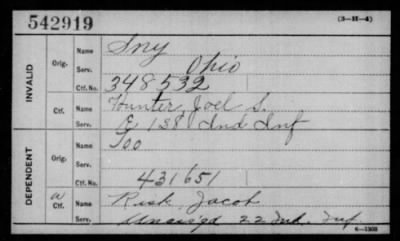 542919
(3-H-4)
INVALID
Orig.
Name Sny
Serv. Ohio
Ctf. No. 348532
Ctf.
Name Hunter, Joel S.
Serv. E 138 Ind Inf
DEPENDENT
Orig.
Name
Serv.
Ctf. No. 431651
a Ctf.
Name Risk, Jacob
Serv. Unassgd 22 Ind. Inf.